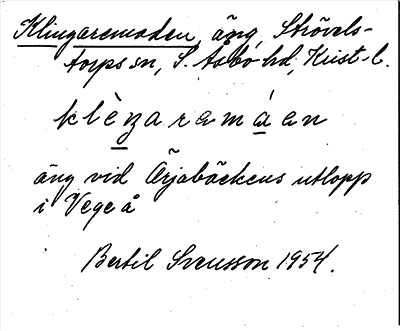 Klingaremaden, äng, Strövels-
torps sn, S. Åsbo hd, Krist-l.
klèngaramáen
äng vid Örjabäckens utlopp
i Vege å
Bertil Svensson 1954.